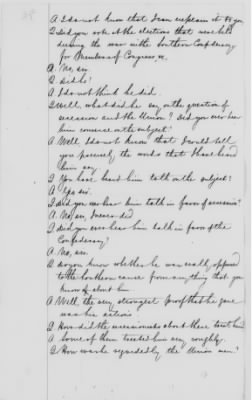 A I do not know that I can explain it to you
Q Did you vote at the elections that were held
during the war in the Southern Confederacy
for Members of Congress &c.
A. No, sir.
Q Did he?
A I do not think he did.
Q Well, what did he say on the question of
secession and the Union? Did you ever hear
him converse on the subject?
A Well I do not know that I could tell
you precisely the words that I have heard
him say
Q You have heard him talk on the subject?
A Yes sir.
Q Did you ever hear him talk in favor of secession?
A. No, sir, I never did
Q Did you ever hear him talk in favor of the
Confederacy?
A No, sir.
Q Do you know whether he was really opposed
to the Southern cause from anything that you
know of about him
A Well, the very strongest proof that he gave
was his actions.
Q How did the secessionists about there treat him
A Some of them treated him very roughly.
Q How was he regarded by the Union men?